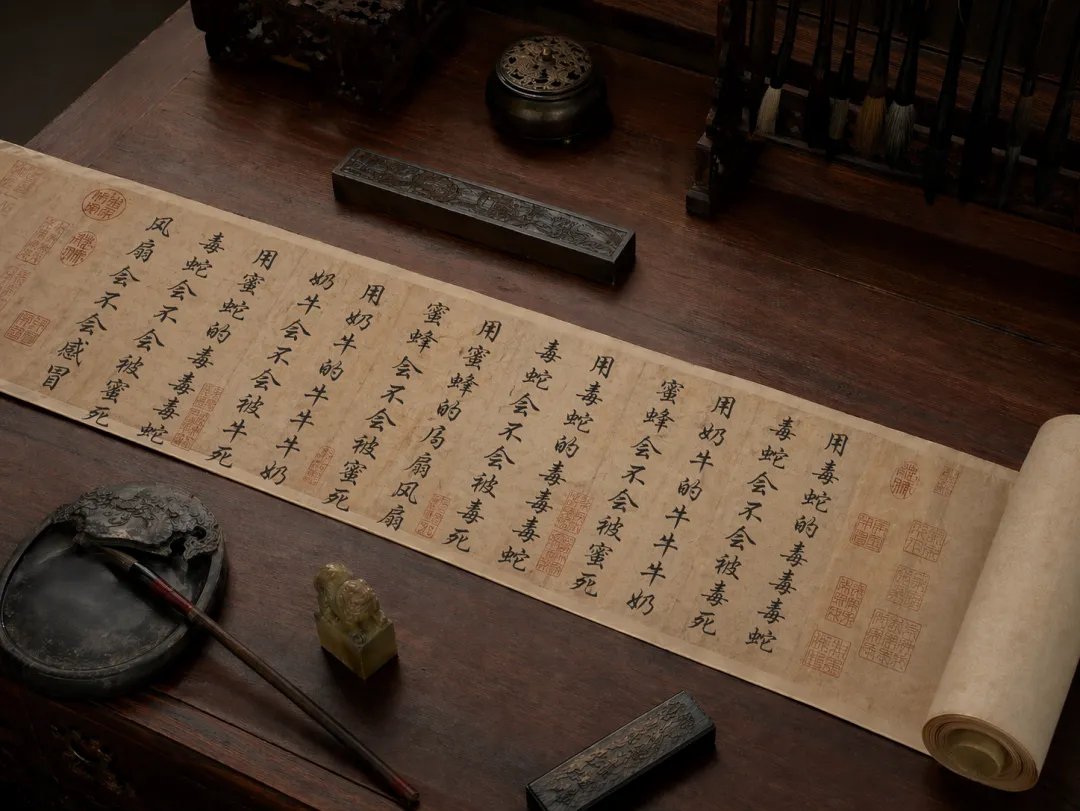 用毒蛇的毒毒毒蛇
毒蛇会不会被毒死
用奶牛的牛牛牛奶
蜜蜂会不会被蜜死
用毒蛇的毒毒毒蛇
毒蛇会不会被毒死
用蜜蜂的局扇风扇
蜜蜂会不会被蜜死
用奶牛的牛牛牛奶
奶牛会不会被牛死
用蜜蛇的毒毒毒蛇
毒蛇会不会被蜜死
风扇会不会感冒